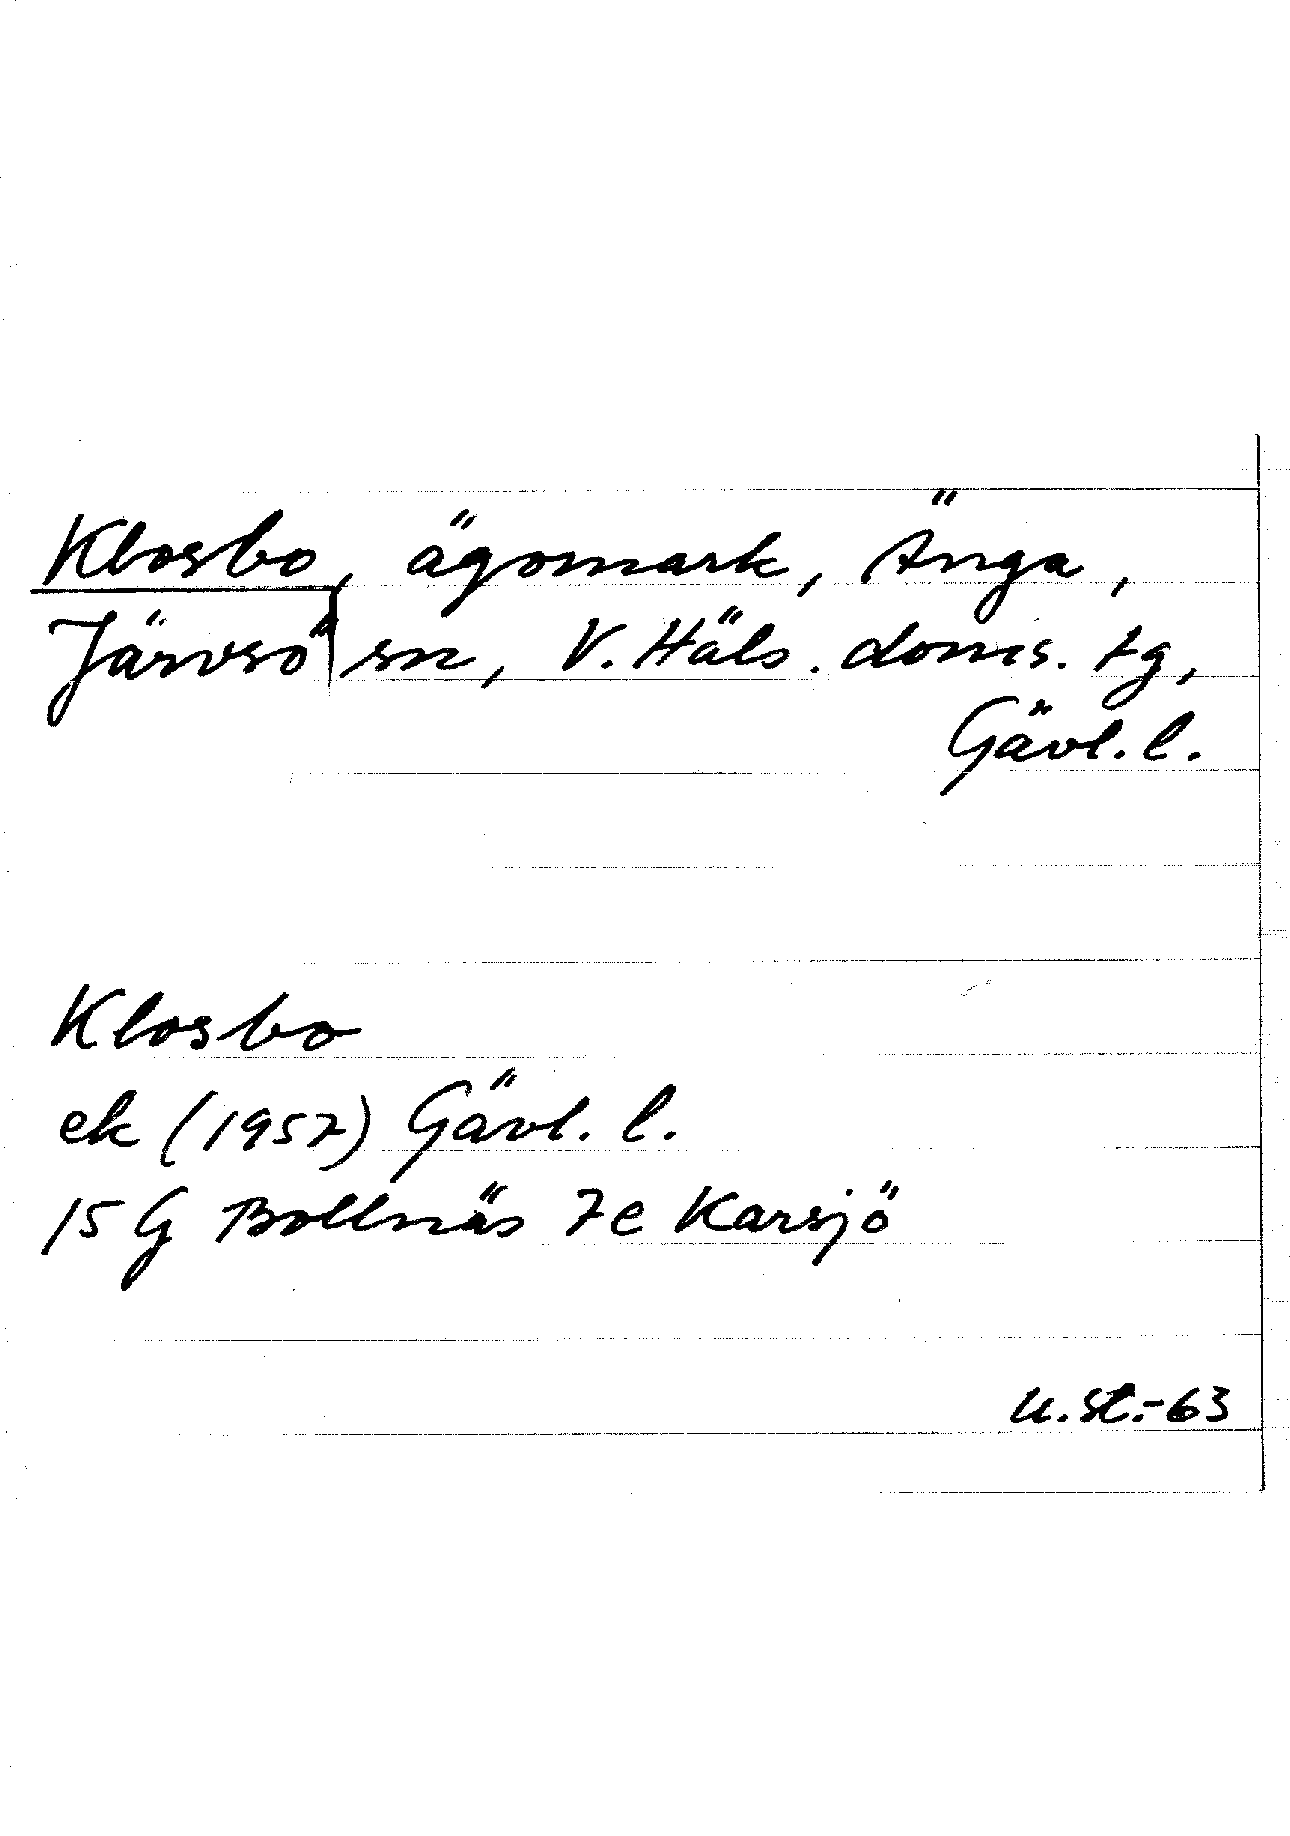 Klosbo, ägomark, Änga,
Järvsö sn, V. Häls. doms. tg,
Gävl. l.
Klosbo
ek (1957) Gävl. l.
15 G Bollnäs 7e Karsjö
U.St.-63